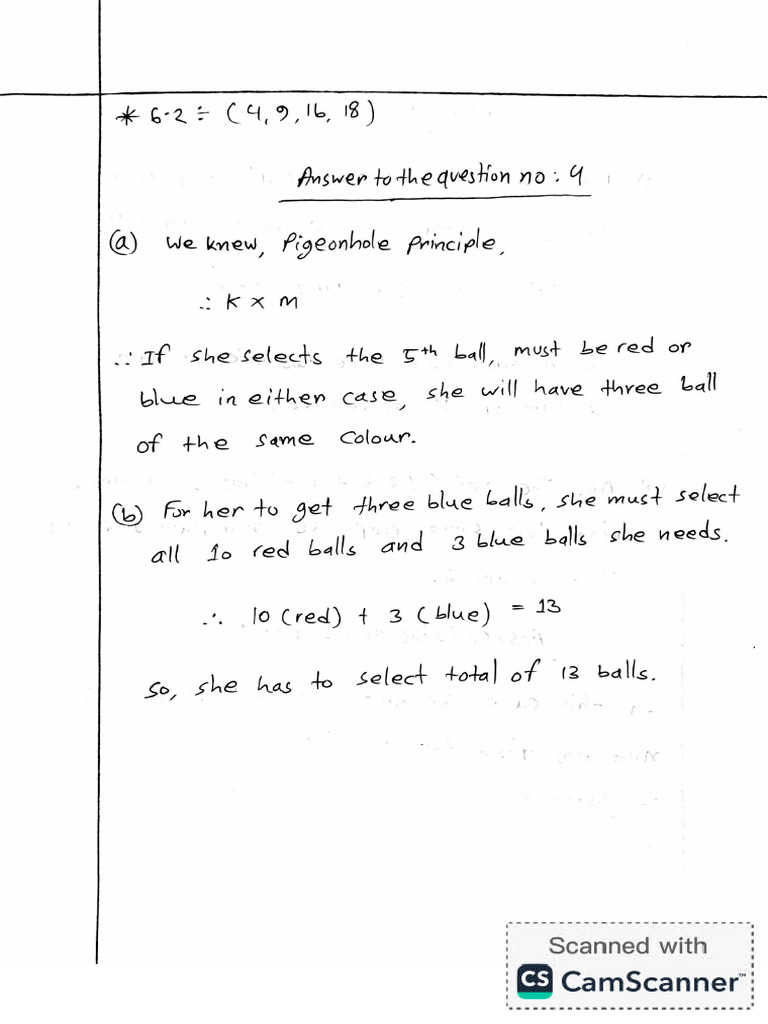 * 6.2 ÷ (4, 9, 16, 18)
Answer to the question no : 4
(a) We knew, Pigeonhole Principle,
∴ K × m
∴ If she selects the 5th ball, must be red or
blue in either case, she will have three ball
of the same colour.
(b) For her to get three blue balls, she must select
all 10 red balls and 3 blue balls she needs.
∴ 10 (red) + 3 (blue) = 13
So, she has to select total of 13 balls.
Scanned with
CS CamScanner™